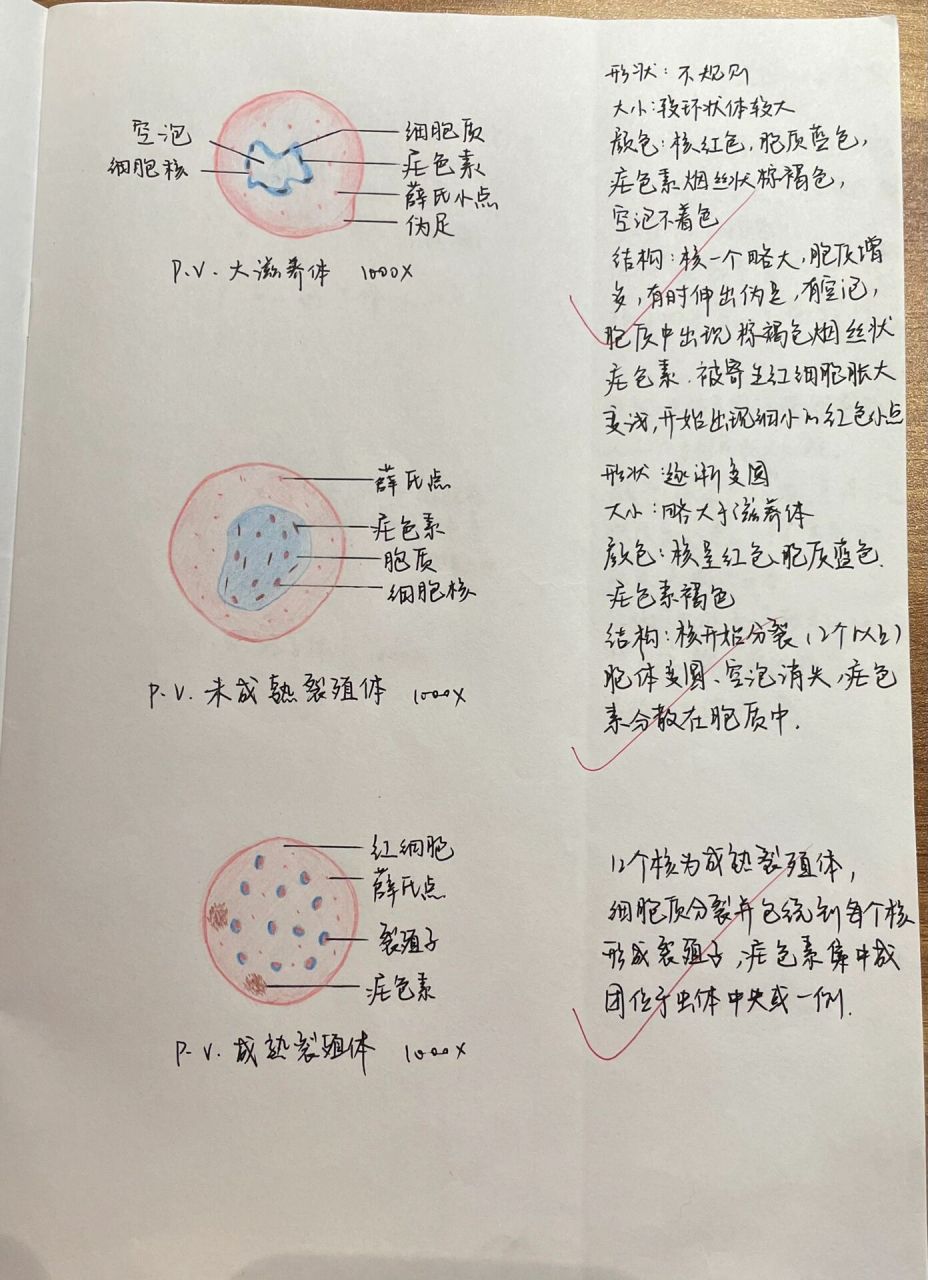 空泡
细胞核
细胞质
疟色素
薛氏小点
伪足
P.V.大滋养体 1000X
形状：不规则
大小：较环状体较大
颜色：核红色，胞质蓝色，
疟色素烟丝状棕褐色，
空泡不着色
结构：核一个略大，胞质增
多，有时伸出伪足，有空泡，
胞质中出现棕褐色烟丝状
疟色素．被寄生红细胞胀大
变浅，开始出现细小的红色小点
薛氏点
疟色素
胞质
细胞核
P.V.未成熟裂殖体 1000X
形状：逐渐变圆
大小：略大于滋养体
颜色：核呈红色，胞质蓝色．
疟色素褐色
结构：核开始分裂（2个以上）
胞体变圆、空泡消失，疟色
素分散在胞质中．
红细胞
薛氏点
裂殖子
疟色素
P.V.成熟裂殖体 1000X
12个核为成熟裂殖体，
细胞质分裂并包绕到每个核
形成裂殖子，疟色素集中成
团位于虫体中央或一侧．